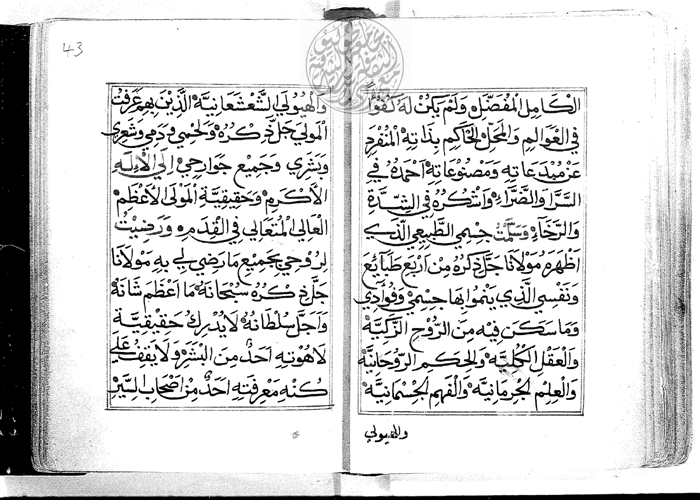 الكامل المفضّله ولم يكن له كفوًا
في العوالم والمحل الحاكم بذاته المنفرد
عن مبدعاته ومصنوعاته احمده في
السرّا والضرّاء واشكره في الشدّة
والرخاء وسلّمت جسمي الطبيعي الذي
اظهره مولانا جلّ ذكره من اربع طبايع
ونفسي الذي ينموا بها جسمي وفوادي
وما سكن فيه من الروح الزكيّة
والعقل الكليّه والحكم الروحانيّة
والعلم الجرمانيّه والفهم الجسمانيّة
والهيولي
43
والهيولي الشعشعانيّة الذين بهم عرفت
المولي جلّ ذكره ولحمي ودمي وشعري
وبشري وجميع جوارحي الي الاله
الاكرم وحقيقيّة المولي الاعظم
العالي المتعالي في القدمه ورضيت
لروحي بجميع ما رضي لي به مولانا
جلّ ذكره سبحانه ما اعظم شانه
واجلّ سلطانه لا يدرك حقيقيّة
لاهوته احد من البشر ولا يقف علي
كنه معرفته احد من اصحاب السير